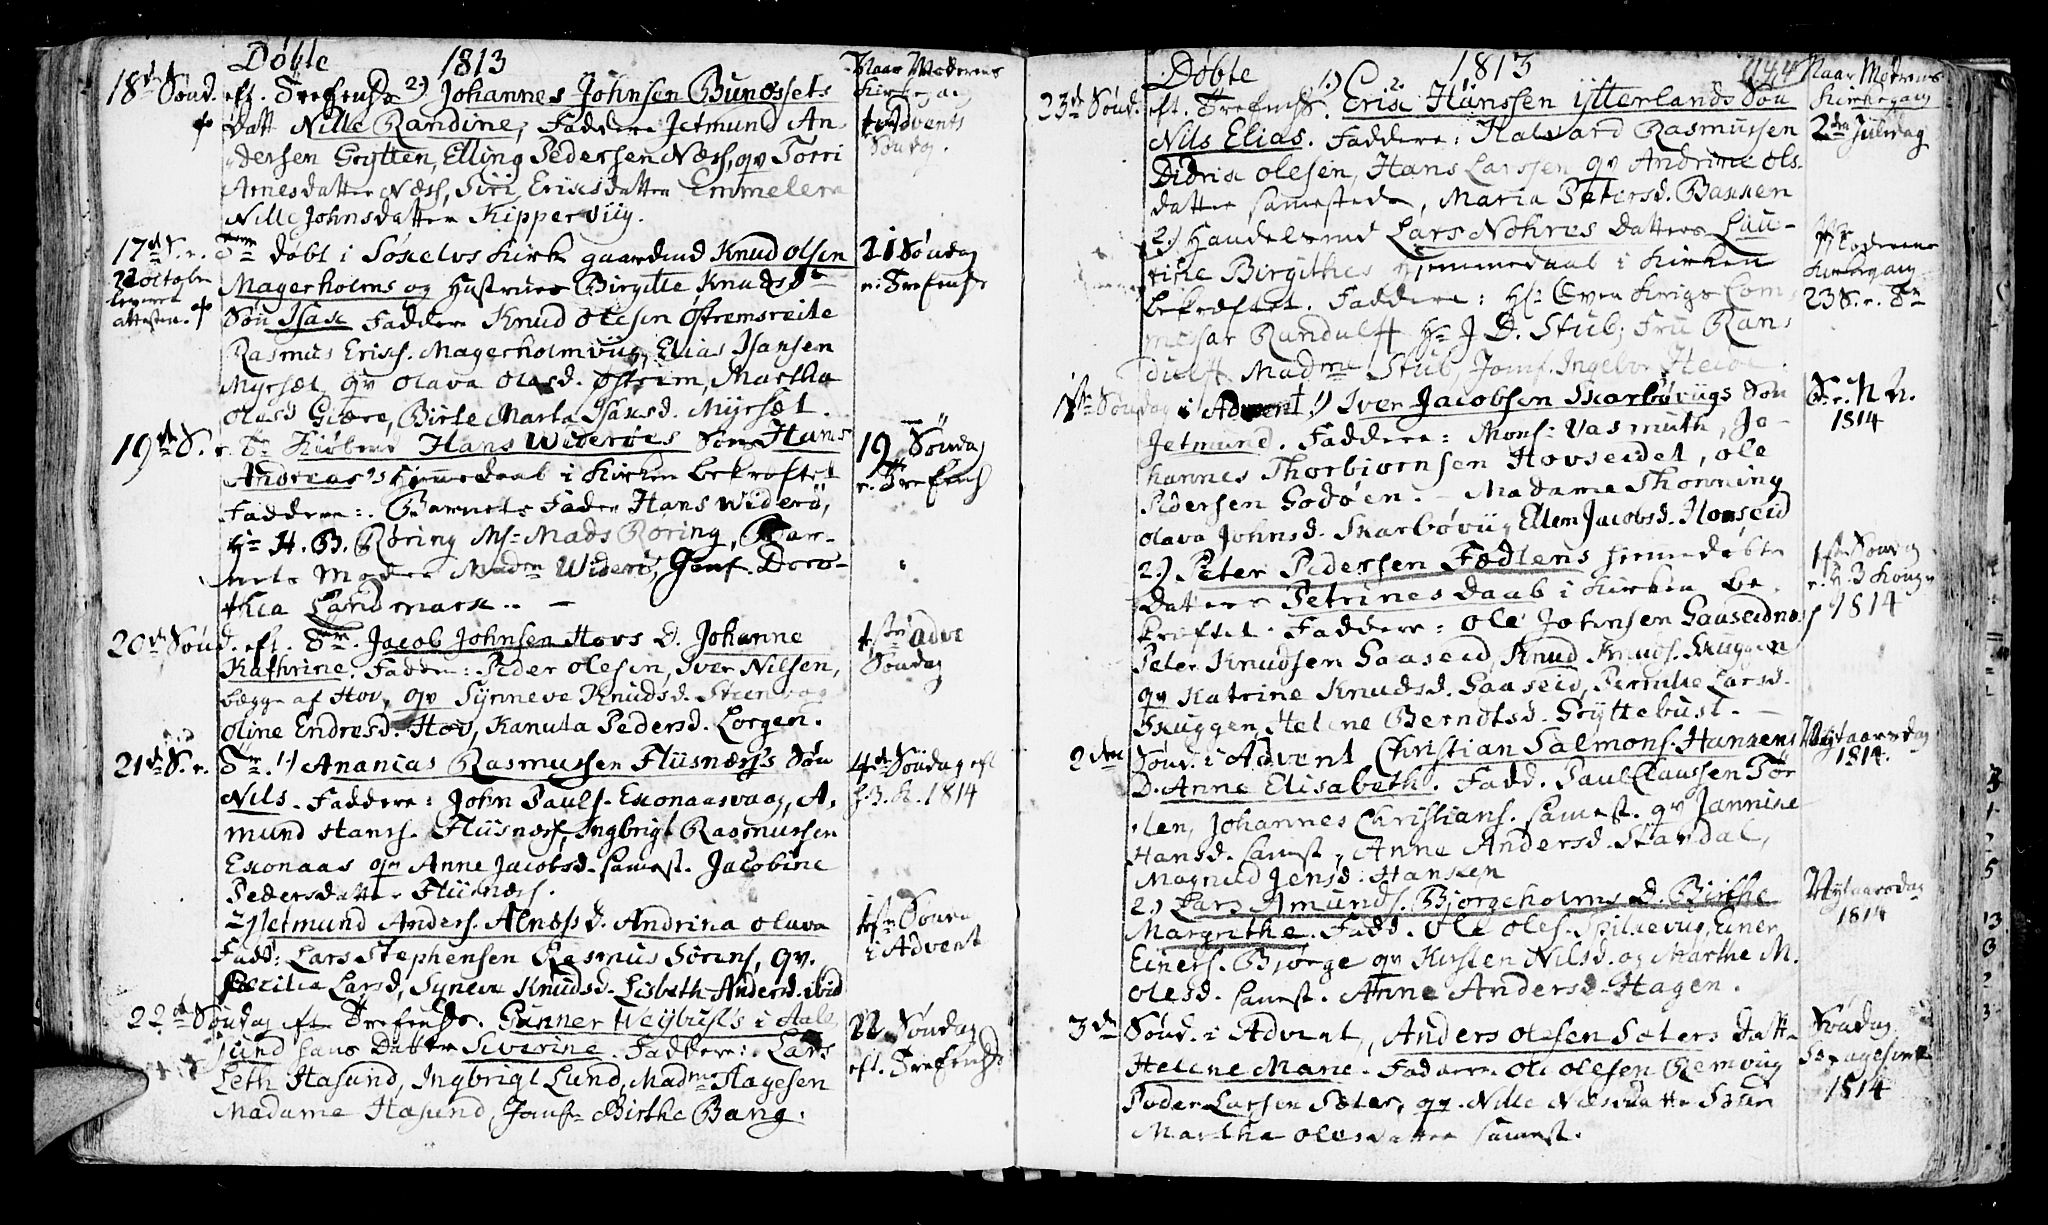 Døbte 1813 Naar Moderens
Kirkegang
18de Sønd. eft. Trefends 2) Johannes Johnsen Bunossets
Datt Nille Randine, Faddere Jetmund An-
dersen Grytten, Elling Pedersen Næss, qv Torri
Arnesdatter Næss, Siri Ericksdatter Emmelera
Nille Johnsdatter Kippervüg.
1te Advents
Søndg.
17de S. e. Trn døbt i Søkelvs Kirke gaardmd Knud Olsen
22 October
leveret
attesten.
Magerholms og Hustrues Birgitte Knudsdr
Søn Isak Faddere Knud Olesen Østremsreite
Rasmus Ericks. Magerholmvüg, Elias Isaksen
Myrsæt, qv Olava Olesd. Østrem, Martha
Olesd Giære, Birte Marta Isaksd. Myrsæt.
21 Søndag
e. Trefends
19de S. e. Tr Kiøbmd Hans Widerøes Søn Hans
Andreas's Hjemedaab i Kirken bekræftet
Faddere: Barnets Fader Hans Widerø,
Hr H. B. Røring Ms. Mads Røring, Bar-
nets Moder Madm Widerø, Jomf. Doro-
thea Landmark. . —
19 Søndag
e. Trefends
20de Sønd. eft. Tr. Jacob Johnsen Hovs D. Johanne
Kathrine. Faddere: Peder Olesen, Iver Nilsen,
begge af Hov, qv Synneve Knudsd. Steenvaag
Oline Endresd. Hov, Kanuta Pedersd. Lorgen.
1ste Adv
Søndag
21de S. e. Tr. 1) Ananias Rasmussen Fliisnæss's Søn
Nils. Faddere: John Pauls. Exonaasvaag, A-
mund Hanss. Fliisnæss, Ingbrigt Rasmussen
Exonaas qv Anne Jacobsd. samest. Jacobine
Pedersdatter Fliisnæss.
4de Søndag eft
H. 3. K. 1814
2) Jetmund Anders. Alnæss D. Andrina Olava
Fadd: Lars Stephensen Rasmus Sørens, qv.
Cecilia Larsd, Syneve Knudsd. Lisbeth Andersd. ibid
1ste Sønd
i Advent
22de Søndag eftr Trefends. Gunner Weybust's i Aale
sund hans Datter Severine. Faddere: Lars
Leth Hasund, Ingbrigt Lund, Madme Aagesen
Madame Hasund, Jomf. Birthe Bang.
22 Søndag
eft. Trefends
Døbte 1813 Naar Modrens
Kirkegang
23de Sønd. eft. Trefends. 1) Erik Hanssen Ytterlands Søn
Nils Elias. Faddere: Halvard Rasmussen
Didrik Olesen, Hans Larssen qv Andrine Ols-
datter sammestede, Maria Petersd. Bakken
2den Juledag
2) Handelsmd Lars Nohres Datters Lau-
rine Birgithes Hjemmedaab i Kirken
bekræftet. Faddere: Hr: Over Krigs Com-
missar Randulff Hr J. D. Stub, Fru Ran-
dulff Madme Stub, Jomf. Ingebor Heide.
Moderens
Kirkegang
23 S. e. Tr
1ste Søndag i Advent. 1) Iver Jacobsen Skarbøviigs Søn
Jetmund. Faddere: Mons: Vasmuth, Jo-
hannes Thorbjørnsen Hovseidet, Ole
Pedersen Godøen. — Madame Thonning
Olava Johnsd. Skarbøviig Ellen Jacobsd. Hovseid
S. e. N. A.
1814
2) Peter Pedersen Fedtens hjemedøbte
Datters Petrines Daab i Kirken be-
kræftet. Faddere: Ole Johnsen Gaaseidnes
Peter Knudsen Gaaseid, Knud Knuds. Skuggen
qv Katrine Knudsd. Gaaseid, Pernille Larsd.
Skuggen, Helene Berndtsd. Gryttebust. —
1ste Søndag
e. H. 3 Konger
1814
2den Sønd. i Advent Christian Salmons. Hansens
D. Anne Elisabeth. Fadd. Paul Claussen Tør
len, Johannes Christians. samest. qv Jannike
Hansd. samest, Anne Andersd. Standal,
Magnild Jensd. Hansen
Nytaarsdag
1814.
2) Lars Amunds. Bjørgeholms D. Birthe
Margrithe. Fadd. Ole Oles. Spilkevig, Einer
Einers. Bjørge qv Kirsten Nilsd. og Marthe M.
Olesd. samest. Anne Andersd. Hagen.
Nytaarsdag
1814
3de Sønd. i Advent, Anders Olesen Sæters Datt.
Helene Marie. Faddere Ole Olesen Remvüg
Peder Larsen Sæter, qv. Nille Nilsdatter Sæter
Martha Olesdatter samest.
Søndag
Sexagesima
1814